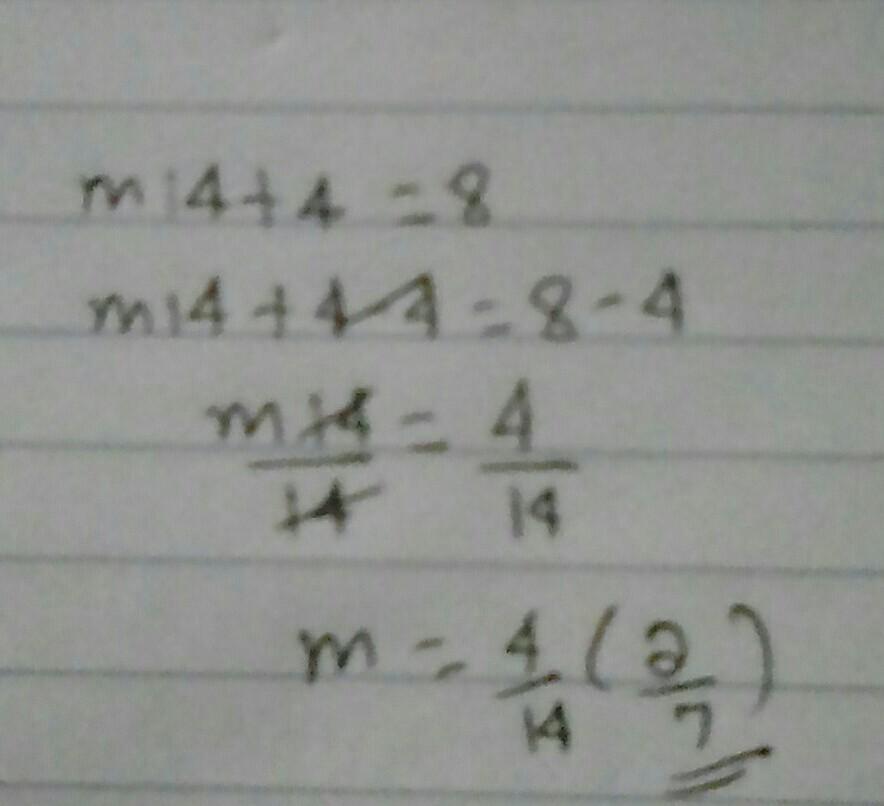 m14+4 = 8
m14+4-4 = 8-4
m14/14 = 4/14
m = 4/14 (2/7)